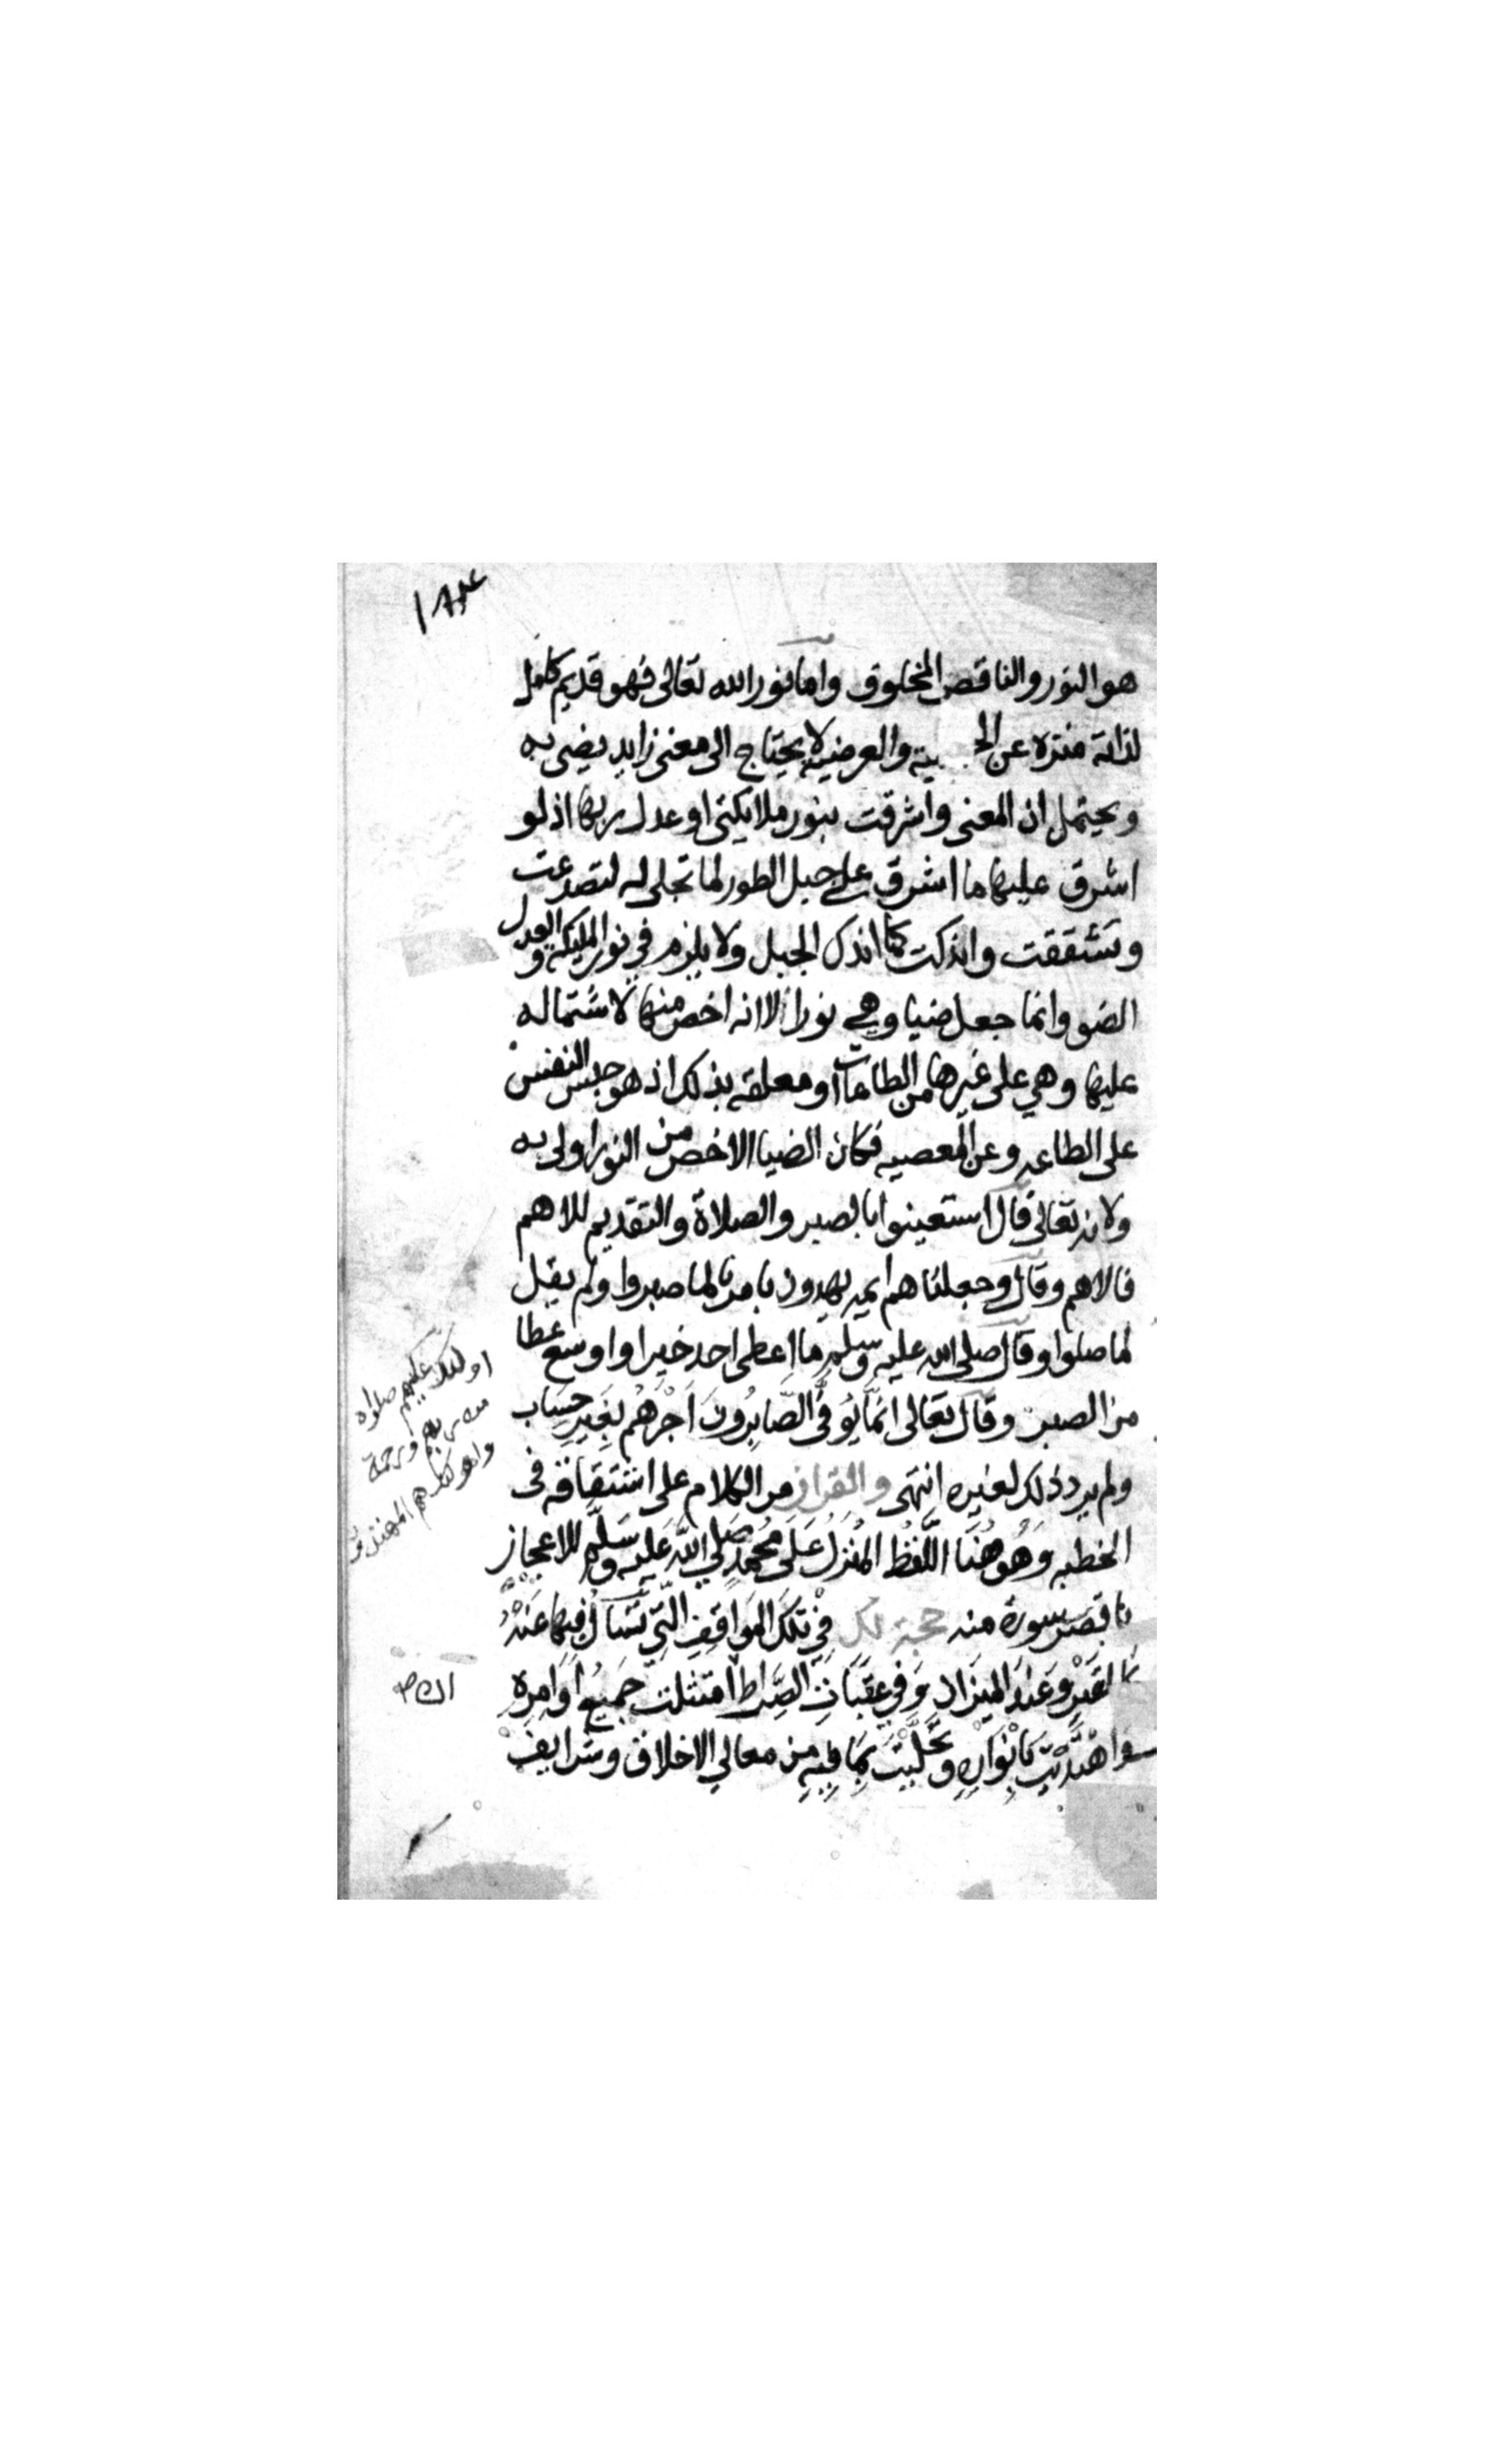 ١٨٣
هو النور والناقص المخلوق واما نور الله تعالى فهو قديم كامل
لذاته منزه عن الج ية والعرضية لا يحتاج الى معنى زايد يضى به
ويحتمل ان المعنى واشرقت بنور ملايكتى او عدل ربها اذ لو
اشرق عليها ما اشرق على جبل الطور لما تجلى له لتصدعت
وتشققت واندكت كما اندك الجبل ولا يلزم في نور المليكه والعدل
الضو وانما جعل ضيا وهي نورا لانه اخص منها لاشتماله
عليها وهي على غيرها من الطاعات او معلقه بذلك اذ هو حبس النفس
على الطاعه وعن المعصيه فكان الضيا الاخص من النور اولى به
ولانه تعالى قال استعينوا بالصبر والصلاة والتقديم للاهم
فالاهم وقال وجعلناهم ايمه يهدون بامرنا لما صبروا ولم يقل
لما صلوا وقال صلى الله عليه وسلم ما اعطى احد خيرا واوسع عطا
من الصبر وقال تعالى انَّمَا يُوَفَّى الصَّابِرُونَ اَجْرَهُمْ بِغَيْرِ حِسَاب
ولم يرد ذلك لغيره انتهى والقران من الكلام على اشتقاقه فى
الخطبه وَهُوَ هُنَا اللَّفْظُ المُنْزَلُ عَلَى مُحَمَّدٍ صَلى اللَّه عَليه وسَلَّم للاعجاز
باقصر سورة منه حجة لك فِي تِلْكَ المَوَاقِفِ الَّتِي تُسَالُ فِيهَا عَنْهُ
كالقَبْرِ وَعِنْدَ المِيزَانِ وَفِي عَقَبَاتِ الصِّرَاطِ امتثلت جَمِيعَ أوَامِرِهِ
واهْتَدَيْتَ بأنْوَارِهِ وَتَحَلَّيْتَ بِمَا فِيهِ من معالي الاخلاق وشرايف
اولئك عليهم صلاه
من ربهم ورحمة
واولئك هم المهتدون